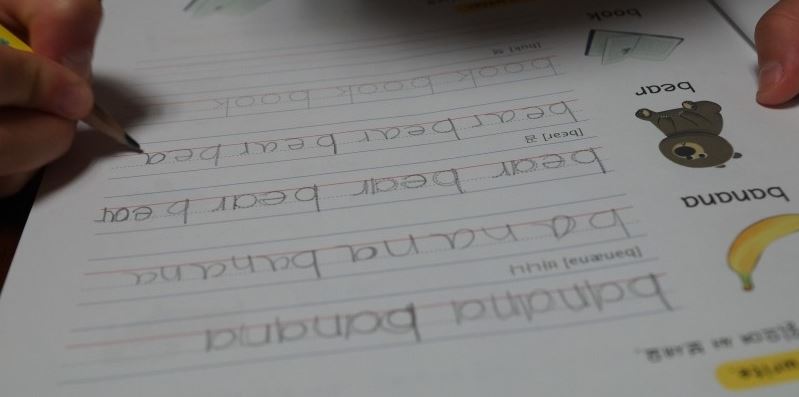 write.
써 보세요.
banana banana
[bənænə] 바나나
banana banana
banana
bear bear bear bear
[bɛər] 곰
bear bear bear bea
bear
book book book
[buk] 책
book